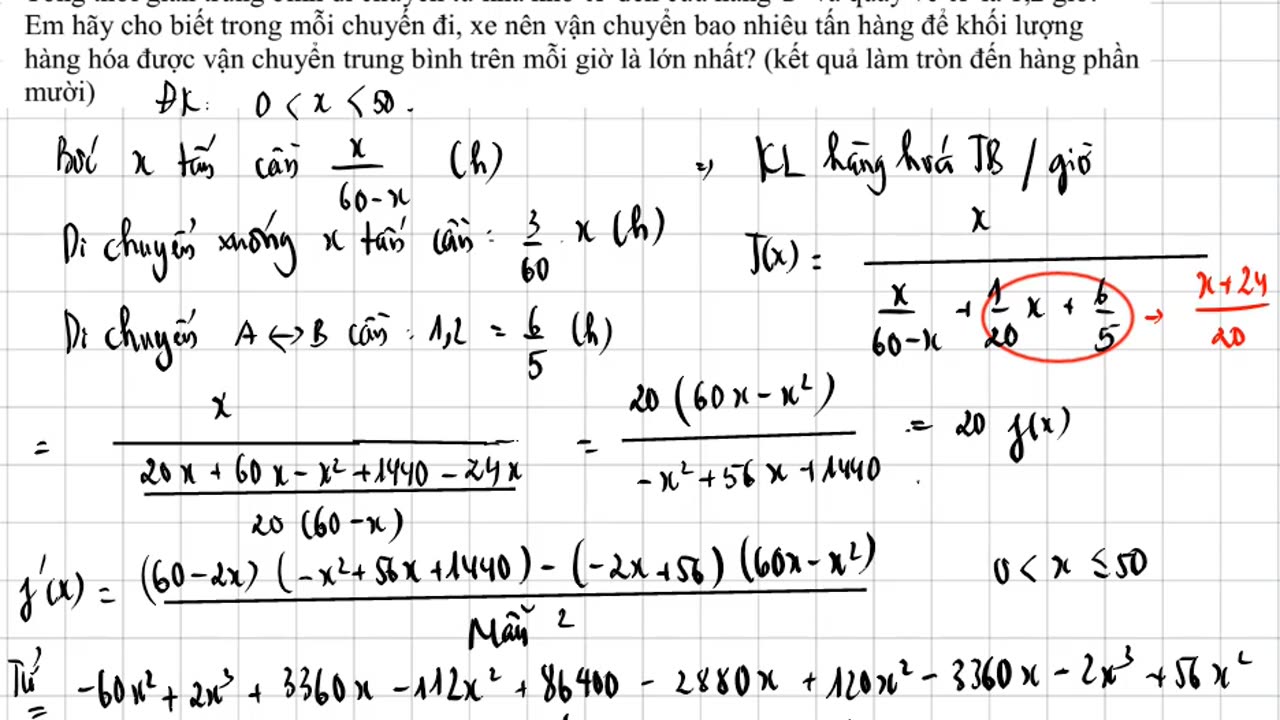 Em hãy cho biết trong mỗi chuyến đi, xe nên vận chuyển bao nhiêu tấn hàng để khối lượng
hàng hóa được vận chuyển trung bình trên mỗi giờ là lớn nhất? (kết quả làm tròn đến hàng phần
mười)
ĐK: 0 < x < 50.
Bốc x tấn cần x/(60-x) (h)
Di chuyển xuống x tấn cần: 3/60 . x (h)
Di chuyển A ↔ B cần: 1,2 = 6/5 (h)
=> KL hàng hoá TB / giờ
T(x) = x / (x/(60-x) + 1/20 x + 6/5) → (x+24)/20
= x / ((20x + 60x - x² + 1440 - 24x) / (20(60-x))) = 20(60x - x²) / (-x² + 56x + 1440) = 20 f(x)
f'(x) = ((60-2x)(-x² + 56x + 1440) - (-2x+56)(60x - x²)) / Mẫu² 0 < x ≤ 50
Tử = -60x² + 2x³ + 3360x - 112x² + 86400 - 2880x + 120x² - 3360x - 2x³ + 56x²